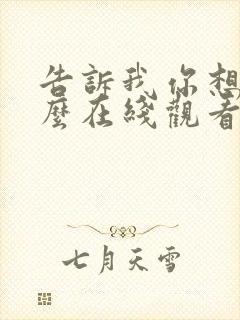 告訴我 你想
麼在綫觀看
七月天雪